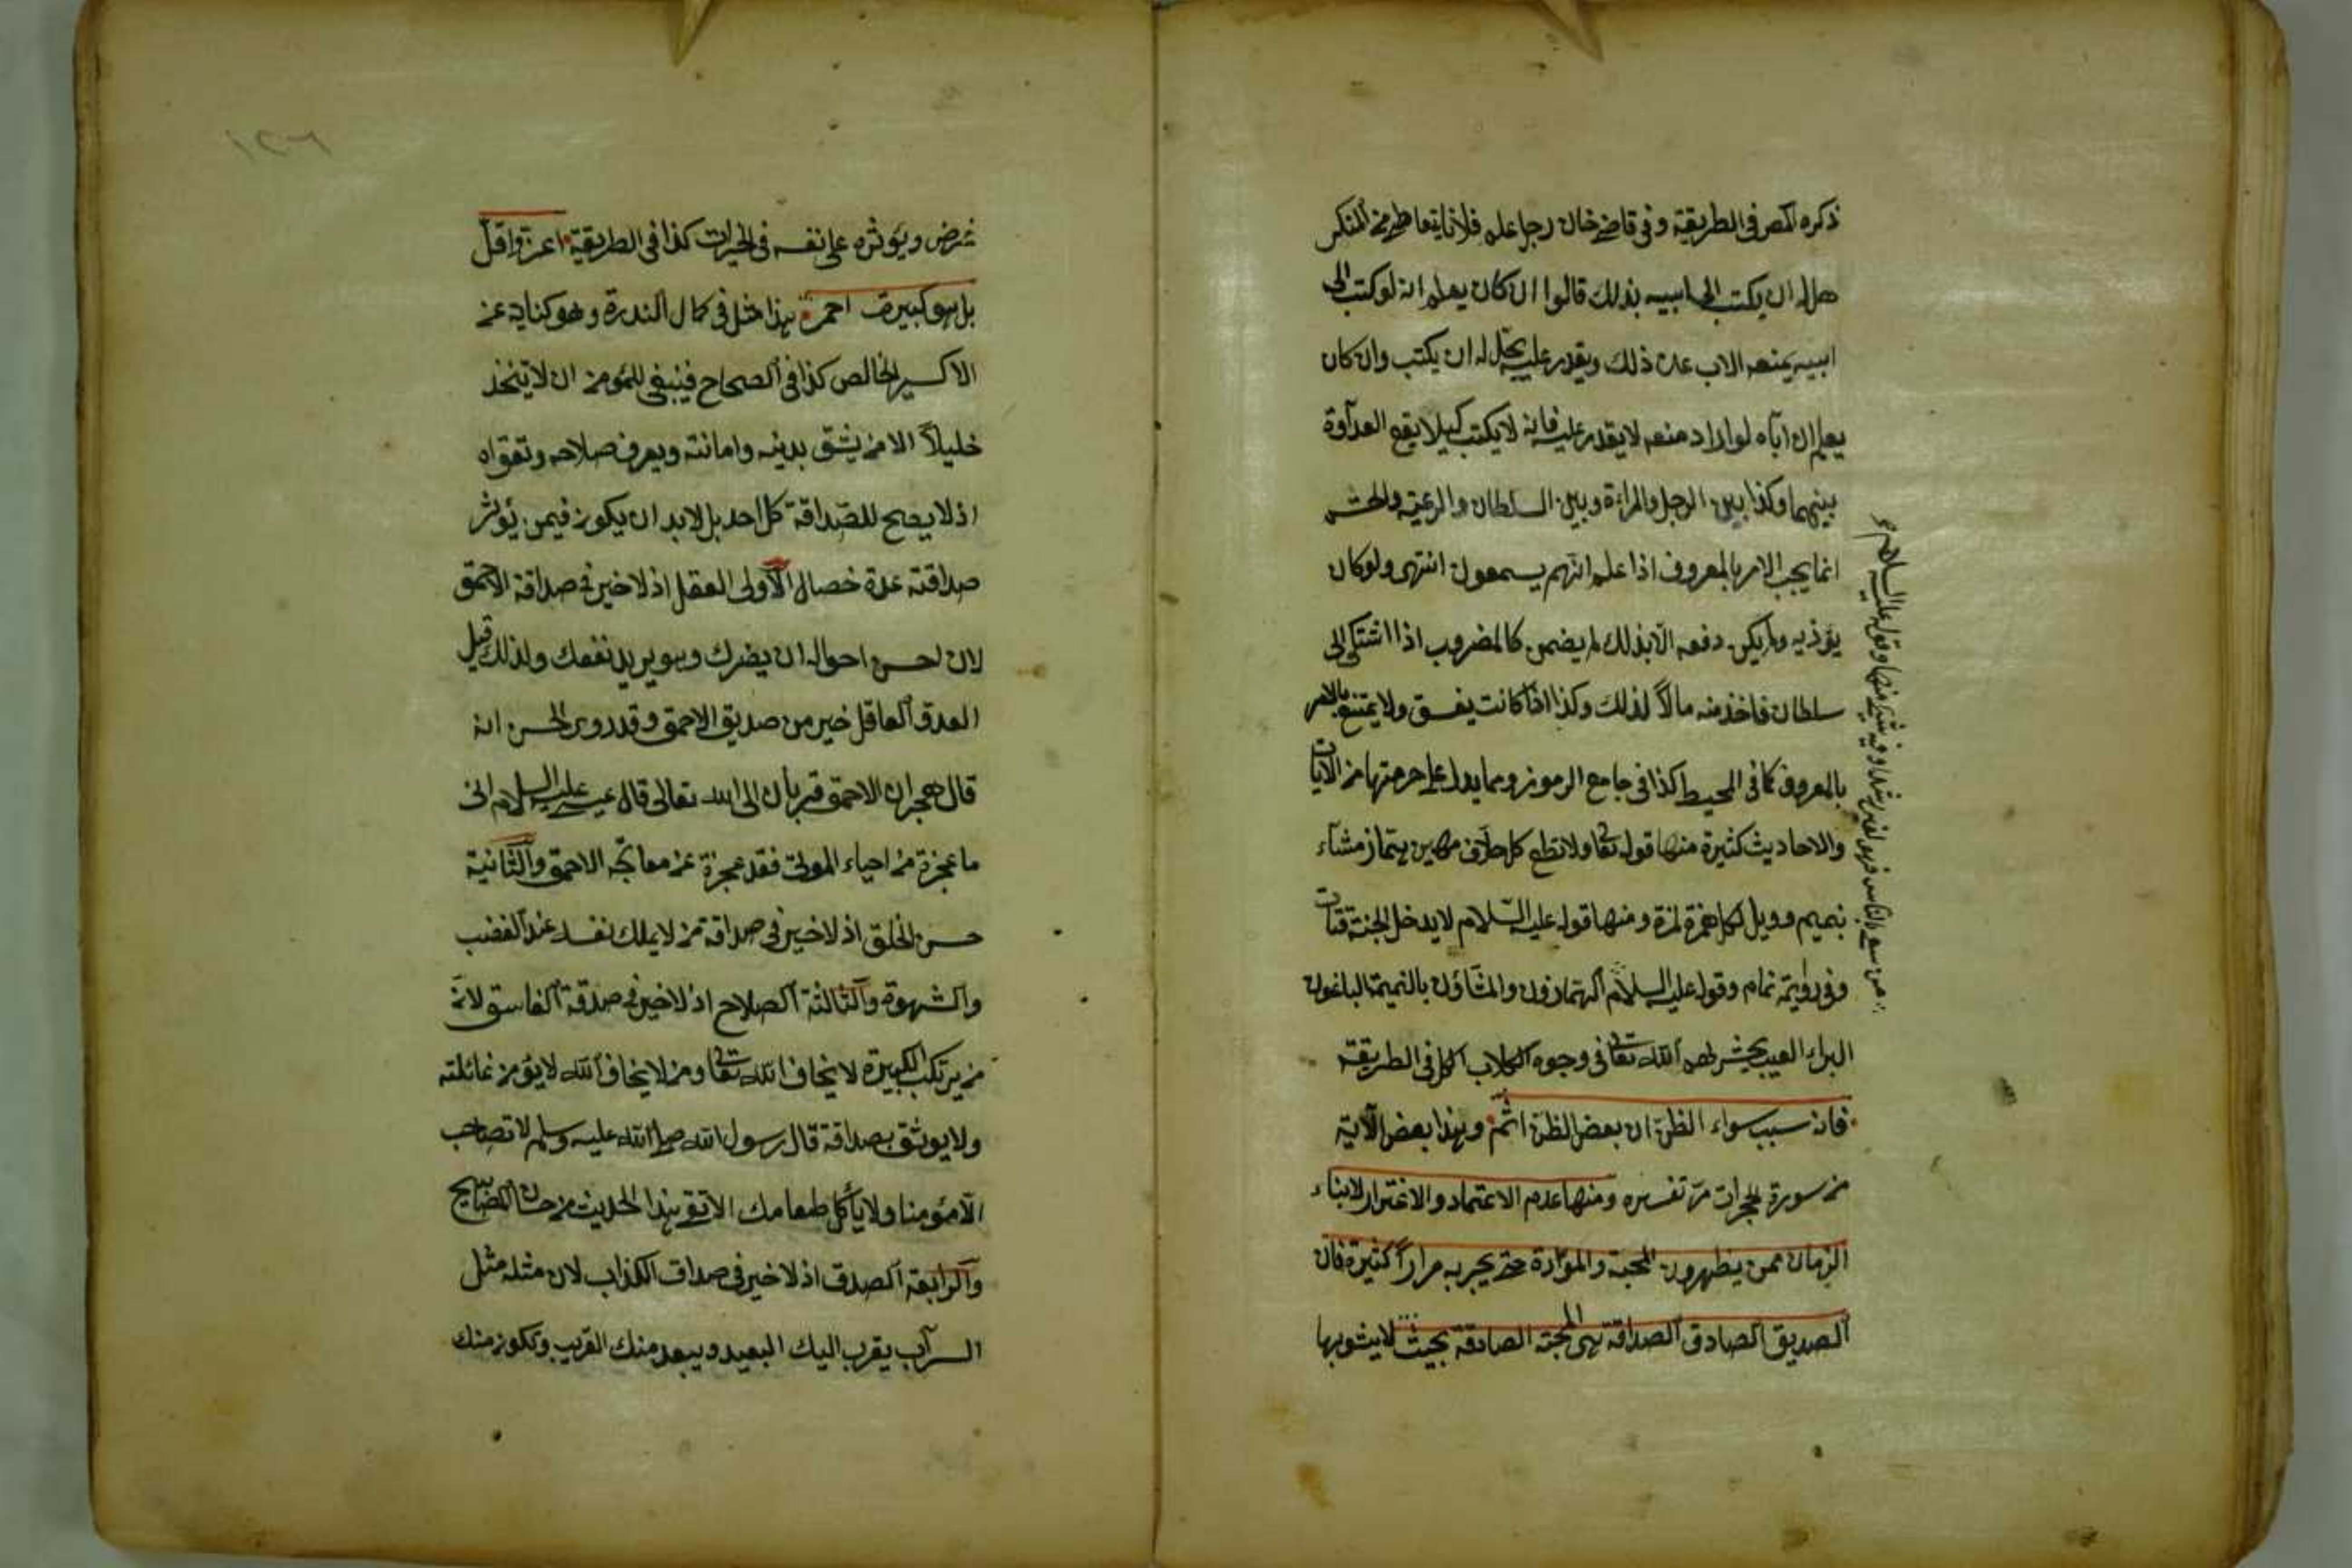 ذكره المص في الطريقة وفي قاضي خان رجل علم فلانا يتعاطى من المنكر
هل له ان يكتب الى ابيه بذلك قالوا ان كان يعلم انه لو كتب الى
ابيه يمنعه الاب عن ذلك ويقدر عليه يحل له ان يكتب وان كان
يعلم ان اباه لو اراد منعه لا يقدر عليه فانه لا يكتب كيلا يقع العداوة
بينهما وكذا بين الرجل والمراة وبين السلطان والرعية والحشم
انما يجب الامر بالمعروف اذا علم انهم يسمعون انتهى ولو كان
يؤذيه ولم يكن دفعه الا بذلك لم يضمن كالمضروب اذا اشتكى الى
سلطان فاخذ منه مالاً لذلك وكذا اذا كانت يفسق ولا يمتنع بالامر
بالمعروف كما في المحيط كذا في جامع الرموز ومما يدل على حرمتها من الآيات
والاحاديث كثيرة منها قوله تعا ولا تطع كل حلاف مهين هماز مشاء
بنميم وويل لكل همزة لمزة ومنها قوله عليه السلام لا يدخل الجنة قتات
وفي رواية نمام وقوله عليه السلام الهمازون واللمازون والمشاؤن بالنميمة الباغون
البراء العيب يحشرهم الله تعا في وجوه الكلاب الكل في الطريقة
فان سبب سواء الظن ان بعض الظن اثم وهذا بعض الآية
من سورة الحجرات مر تفسيره ومنها عدم الاعتماد والاغترار لابناء
الزمان ممن يظهرون المحبة والموادة حتى يجربه مراراً كثيرة فان
الصديق الصادق الصداقة هي المحبة الصادقة بحيث لا يشوبها
من سعى بالناس فهو لغير رشدة وفيه شيء منها وقوله عليه السلام
١٢٦
غرض ويؤثره على نفسه في الخيرات كذا في الطريقة اعز واقل
بل هو كبيرت احمر هذا مثل في كمال الندرة وهو كناية عن
الاكسير الخالص كذا في الصحاح فينبغي للمؤمن ان لا يتخذ
خليلاً الا من يثق بدينه وامانته ويعرف صلاحه وتقواه
اذ لا يصح للصداقة كل احد بل لا بد ان يكون فيمن يؤثر
صداقته عدة خصال الاولى العقل اذ لا خير في صداقة الاحمق
لان احسن احواله ان يضرك وهو يريد نفعك ولذلك قيل
العدو العاقل خير من صديق الاحمق وقد روى الحسن انه
قال هجران الاحمق قربان الى الله تعالى قال عيسى عليه السلام انى
ما عجزة من احياء الموتى فقد عجزة عن معالجه الاحمق والثانية
حسن الخلق اذ لا خير في صداقة من لا يملك نفسه عند الغضب
والشهوة والثالثة الصلاح اذ لا خير في صدقة الفاسق لانه
من يرتكب الكبيرة لا يخاف الله تعا ومن لا يخاف الله لا يؤمن غائلته
ولا يوثق بصداقة قال رسول الله صلى الله عليه وسلم لا تصاحب
الا مؤمنا ولا يأكل طعامك الا تقى هذا الحديث من حسان المصابيح
والرابعة الصدق اذ لا خير في صداق الكذاب لان مثله مثل
السراب يقرب اليك البعيد ويبعد منك القريب وتكون منك